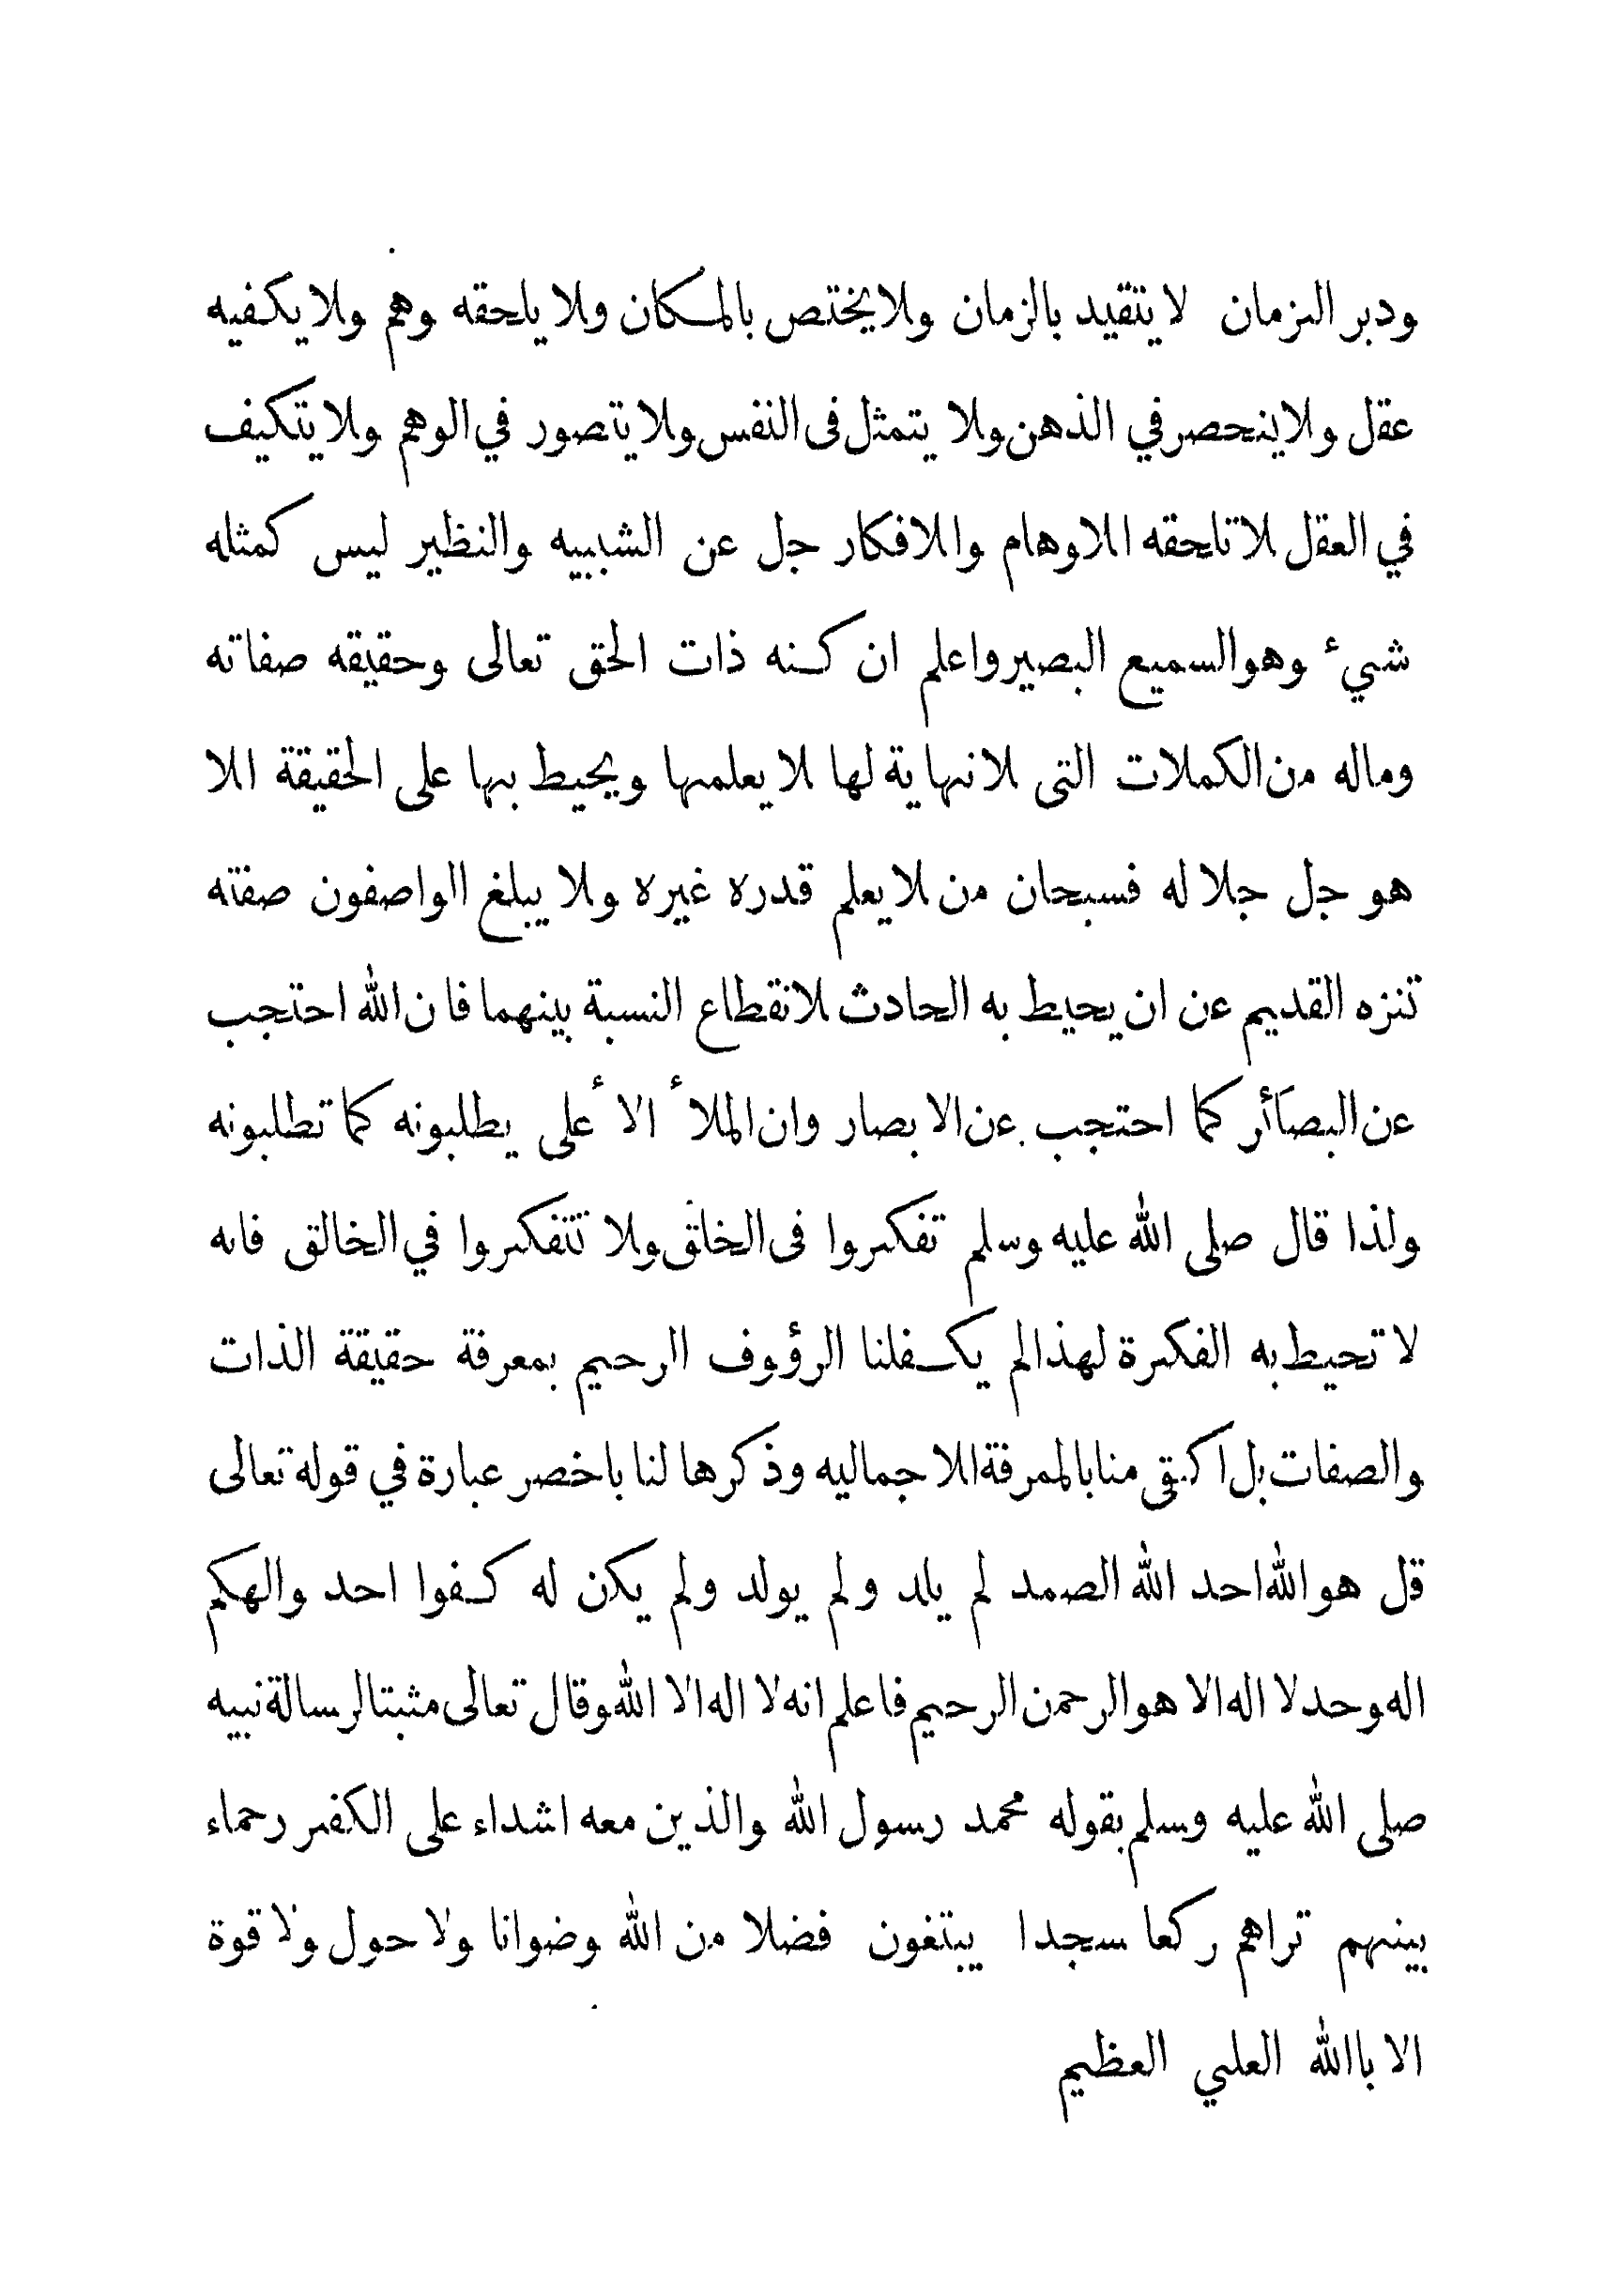 ودبر الزمان لا يتقيد بالزمان ولا يختص بالمكان ولا يلحقه وهم ولا يكفيه
عقل ولا ينحصر في الذهن ولا يتمثل فى النفس ولا يتصور في الوهم ولا يتكيف
في العقل لا تلحقه الاوهام والافكار جل عن الشبيه والنظير ليس كمثله
شيء وهو السميع البصير واعلم ان كنه ذات الحق تعالى وحقيقه صفاته
وماله من الكملات التى لا نهاية لها لا يعلمها ويحيط بها على الحقيقة الا
هو جل جلا له فسبحان من لا يعلم قدره غيره ولا يبلغ الواصفون صفته
تنزه القديم عن ان يحيط به الحادث لا نقطاع النسبة بينهما فان الله احتجب
عن البصآئر كما احتجب عن الابصار وان الملأ الأعلى يطلبونه كما تطلبونه
ولذا قال صلى الله عليه وسلم تفكروا فى الخلق ولا تتفكروا في الخالق فانه
لا تحيط به الفكرة لهذالم يكفلنا الرؤوف الرحيم بمعرفة حقيقة الذات
والصفات بل اكتفى منا بالمعرفة الاجماليه وذكرها لنا باخصر عبارة في قوله تعالى
قل هو الله احد الله الصمد لم يلد ولم يولد ولم يكن له كفوا احد والهكم
اله وحد لا اله الا هو الرحمن الرحيم فاعلم انه لا اله الا الله وقال تعالى مثبتا لرسالة نبيه
صلى الله عليه وسلم بقوله محمد رسول الله والذين معه اشداء على الكفر رحماء
بينهم تراهم ركعا سجدا يبتغون فضلا من الله وضوانا ولا حول ولا قوة
الا باالله العلي العظيم